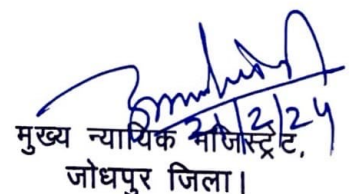 21/2/24
मुख्य न्यायिक मजिस्ट्रेट,
जोधपुर जिला।